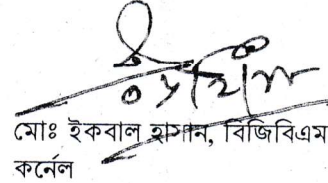 মোঃ ইকবাল হাসান, বিজিবিএম
কর্নেল